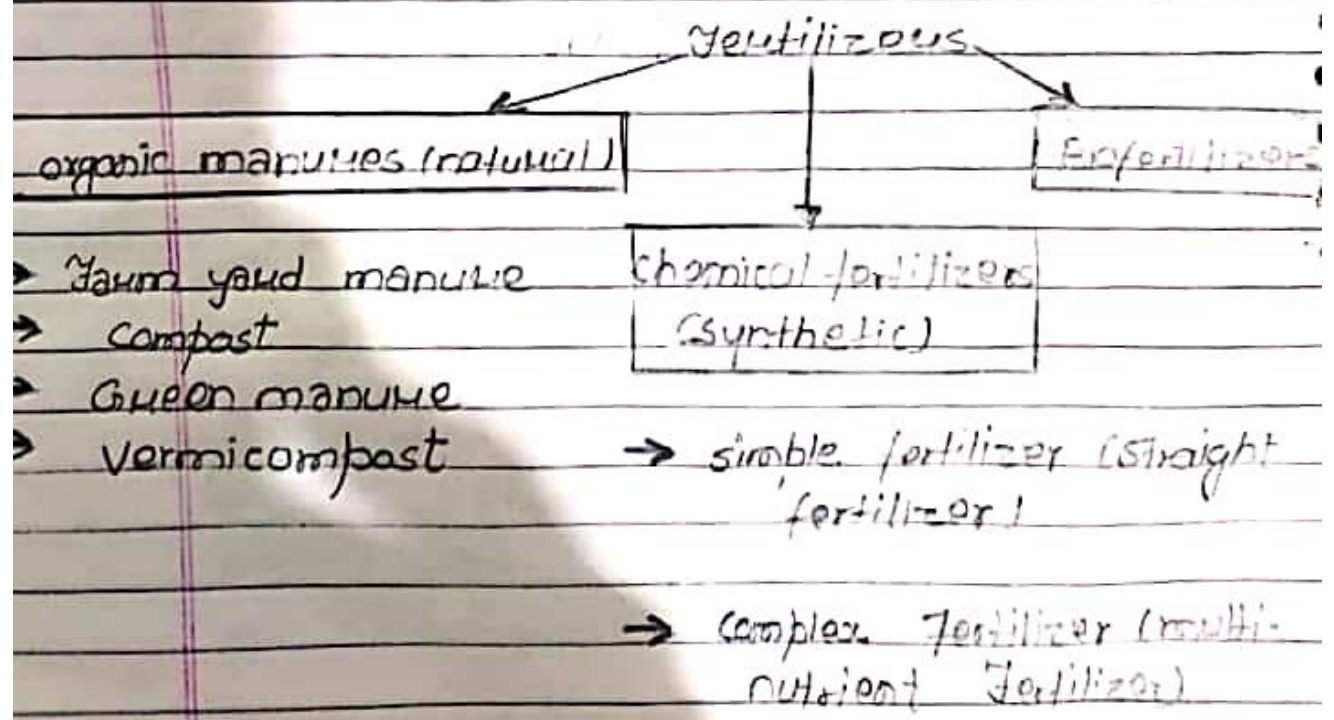 Fertilizers
organic manures (natural)
Biofertilizers
→ Farm yard manure
→ compost
→ Green manure
→ vermicompost
chemical fertilizers
(synthetic)
→ simple fertilizer (straight
fertilizer)
→ complex fertilizer (multi-
nutrient fertilizer)